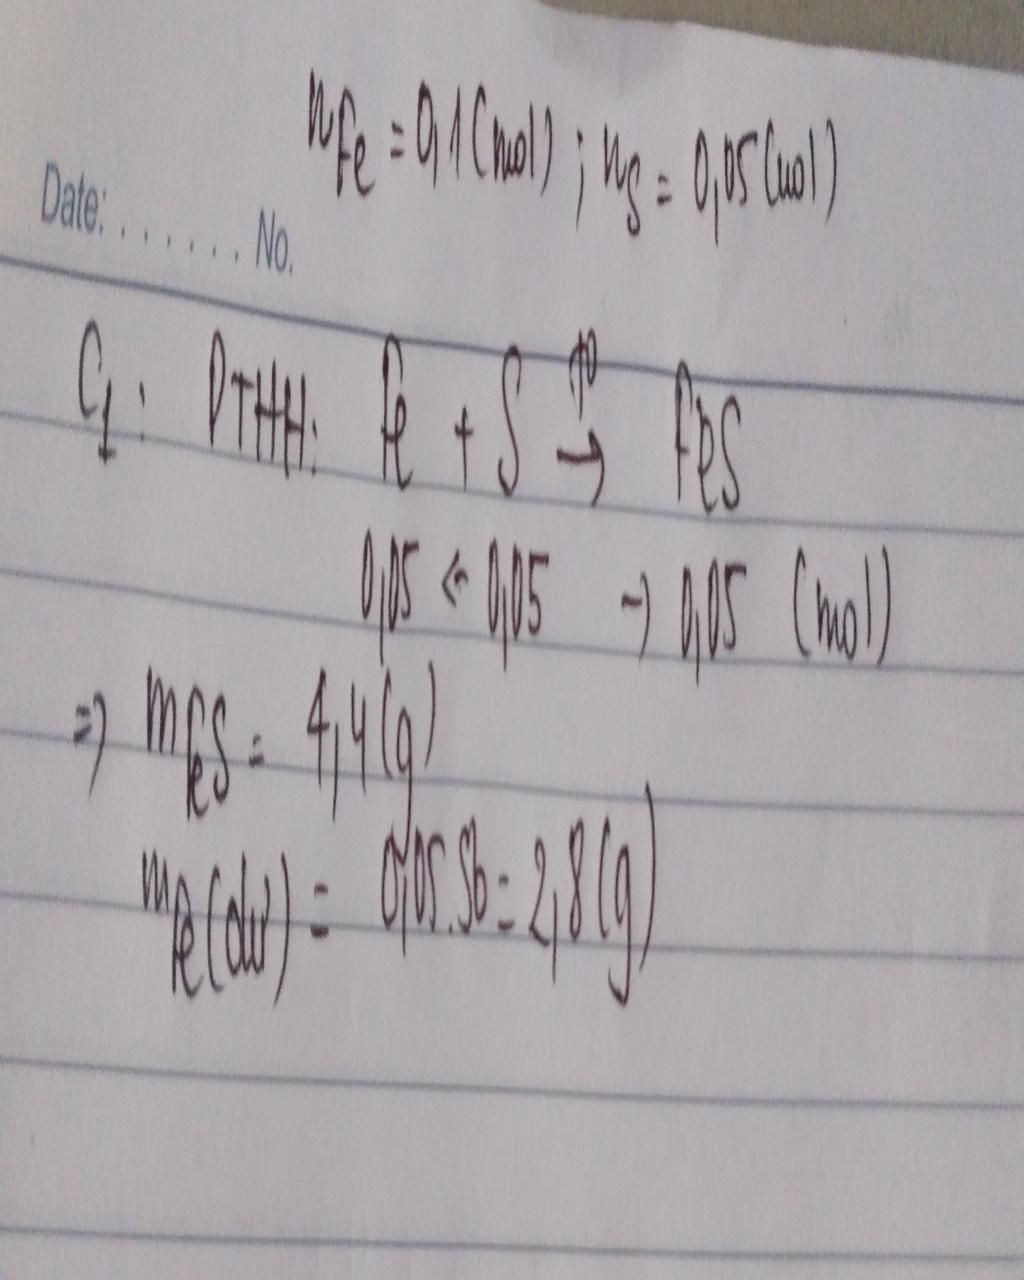 nFe = 0,1 (mol) ; nS = 0,05 (mol)
Date: . . . . . . . No.
C1: PTHH: Fe + S t° → FeS
0,05 ← 0,05 → 0,05 (mol)
=> mFeS = 4,4 (g)
mFe (dư) = 0,05.56 = 2,8 (g)